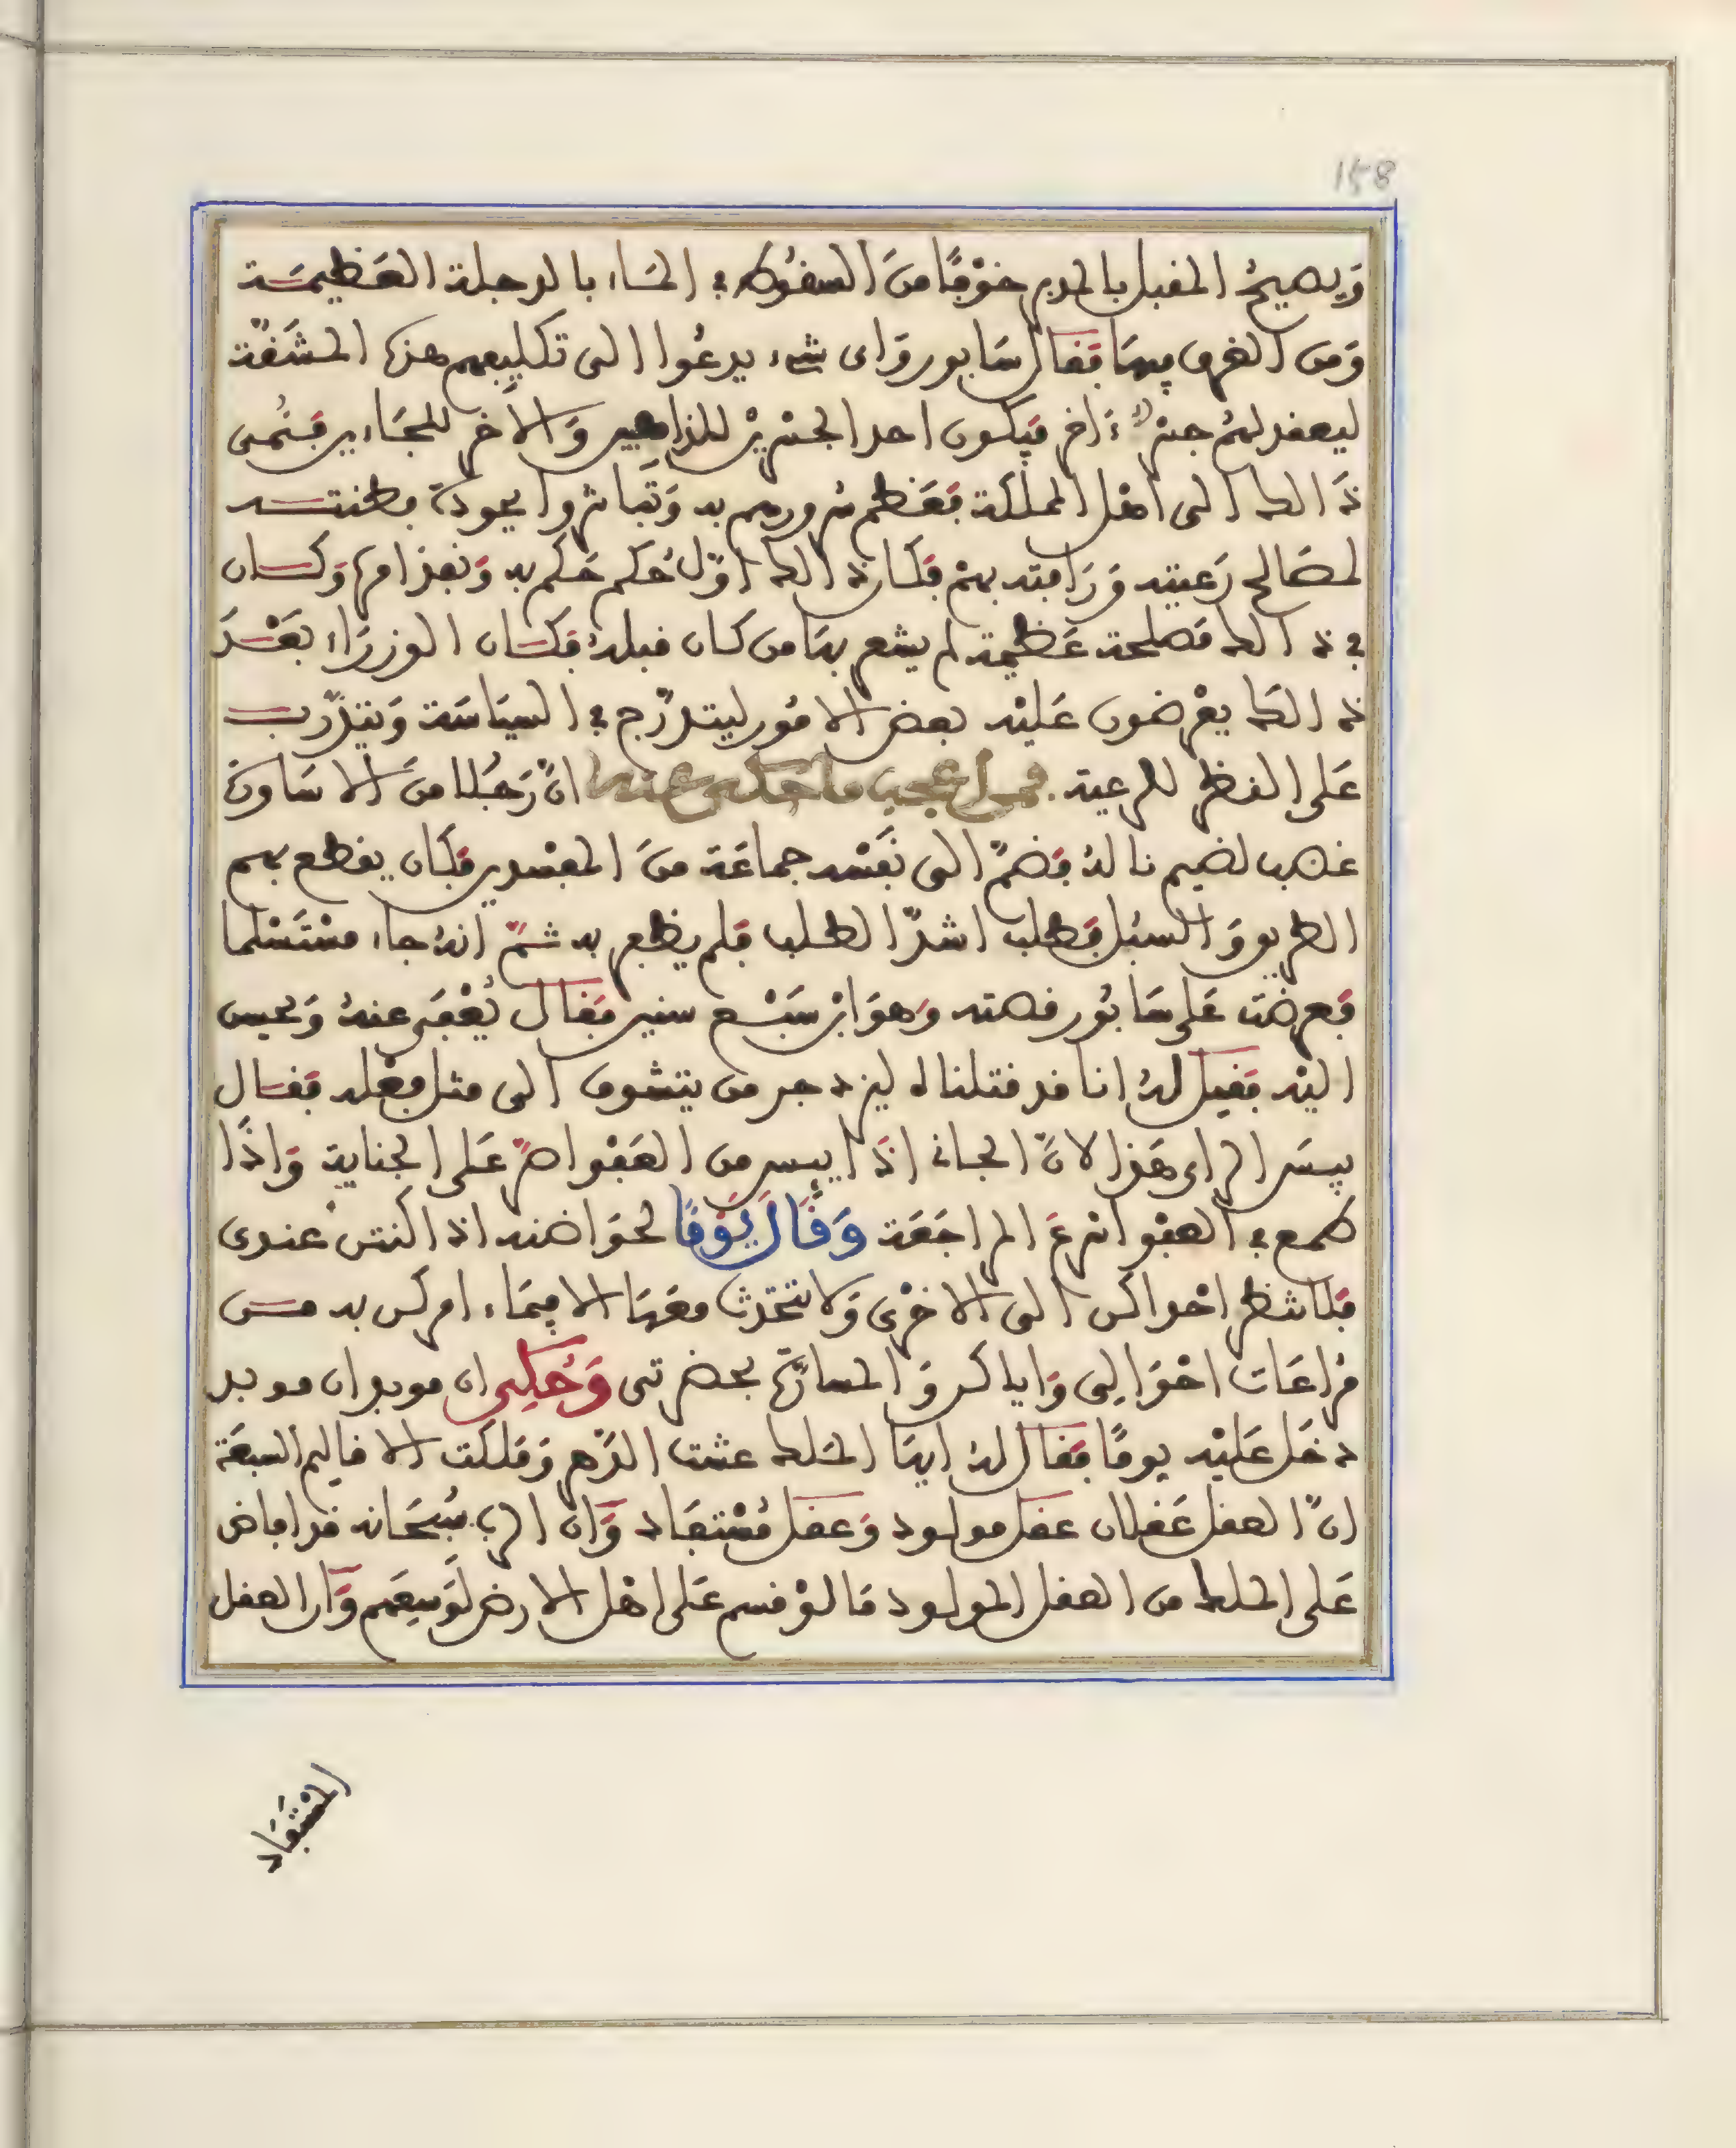 158
وَيصيحُ المقبل بالمدبر خوْفًا منَ السقُوط في المَاء بالدجلة العَظيمَة
وَمن الغرق فيهَا فَقَال سَابور وَاى شىء يدعُوا الى تكليفهم هذه المشَقّة
ليعقد لهُم جسْرٌ ءَاخر فيَكون احد الجسْريْن للذاهبين وَالاَخر للجَاءين فَنُمى
ذَالك الى اهْل المملكة فعَظم سُرورهم به وَتَباشروا بجودة فطنته
لمصَالح رَعيته وَرَافته بهمْ فكَان ذَالك اوّل حُكم حَكم به وَنفذ امره وَكان
في ذَالك مَصلحة عَظيمة لم يشعر بهَا من كان قبلهُ فكَان الوزرَاء بعْدَ
ذَالكَ يعْرضون عَليْه بعض الامُور ليتدرّج في السيَاسَة وَيتدَرّب
عَلى النظر للرعية. فمن اعجب ما حكى عنه انّ رَجُلا منَ الاسَاورة
غصب لضيم نالهُ فَضمّ الى نَفسْه جماعَة منَ المفسْدين فكَان يقطع بهم
الطريق وَالسبُل فطلب اشدّ الطلب فلم يظفر به ثمّ انهُ جاء مسْتَسْلما
فَعرضَت عَلى سَابُور قصته وَهوَ ابْن سَبْع سنين فَقَال يُعْفَى عنهُ وَيحسن
اليْه فَقيل لهُ انا قد قتلناه ليزدجر من يتشوف الى مثل فعْله فَقال
بيسَ الراى هَذا لانّ الجانى اذَا ييس من العَفْو اصرّ عَلى الجناية وَاذَا
طمع في العفْو اسْرعَ المراجَعَة وَقَالَ يَوْمًا لحوَاضنه اذا كنتن عندى
فلا تنظر احْداكن الى الاخْرى وَلا تتحَدث معَهَا الا فيمَا ءامركن به من
مُراعَات احْوَالِى وَاياكن وَالمسارّة بحضرتى وَحُكِى ان موبدان موبد
دخَل عَليْه يومًا فَقَال لهُ ايهَا الملك عشت الدّهر وَملكت الاقاليم السبعَة
انّ العقل عَقلان عقل مولود وَعقل مُسْتفَاد وَانّ الربّ سُبحَانه قد افاض
عَلى الملك من العقل المولود مَا لوْ قسم عَلى اهْل الارض لَوَسِعَهم وَانّ العقل
المسْتَفَاد